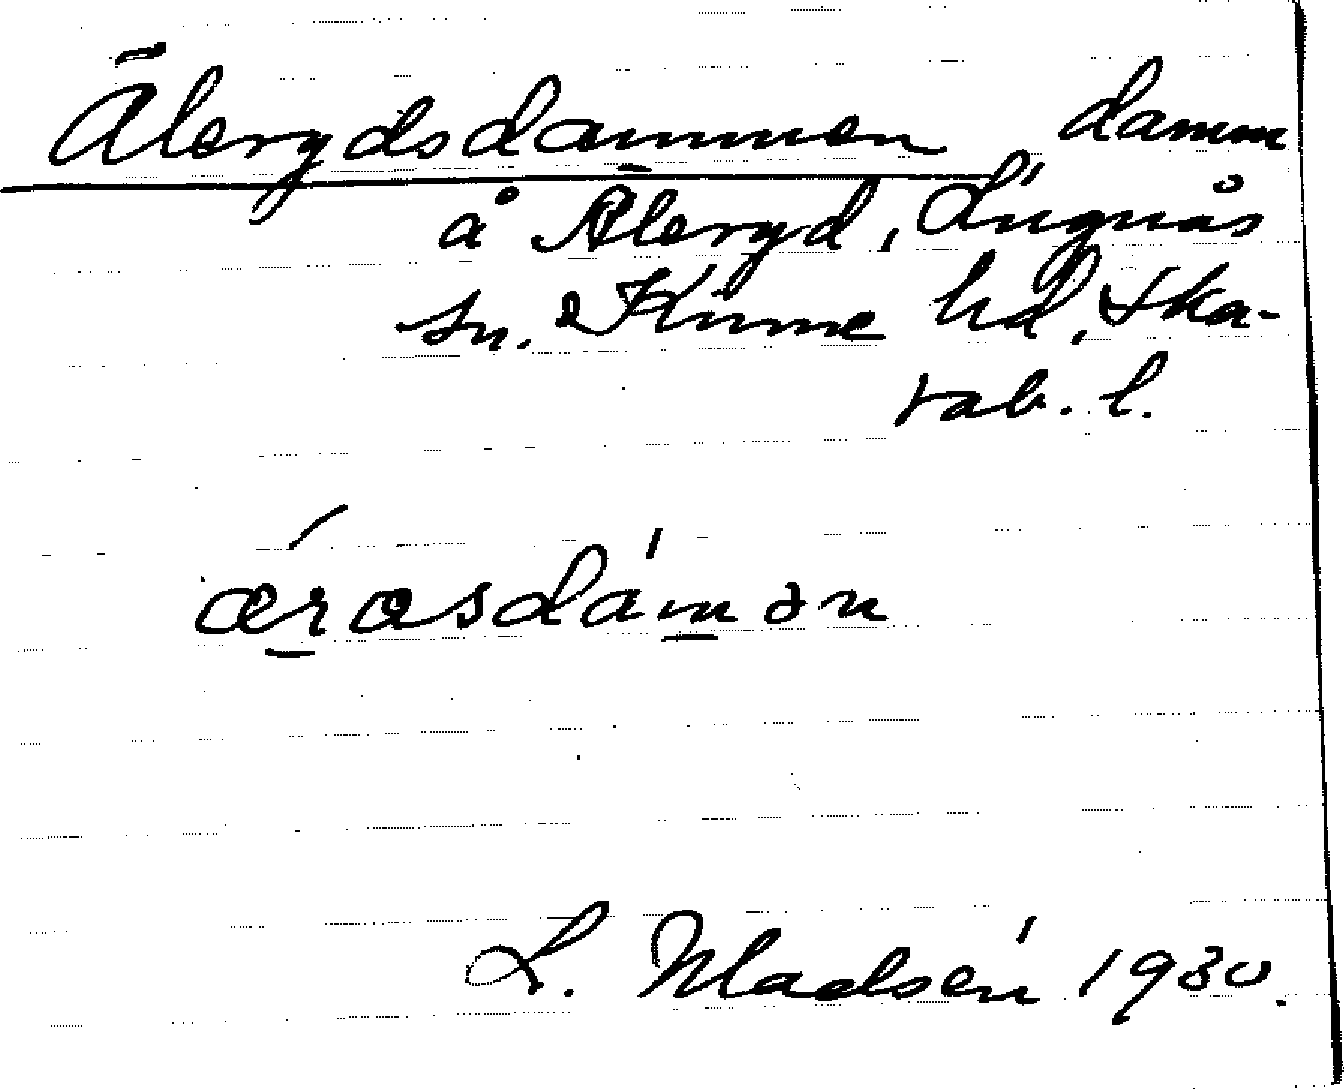 Älerydsdammen damm
å Äleryd, Lugnås
sn. Kinne hd, Ska-
rab. l.
ærasdámən
L. Madsén 1930.